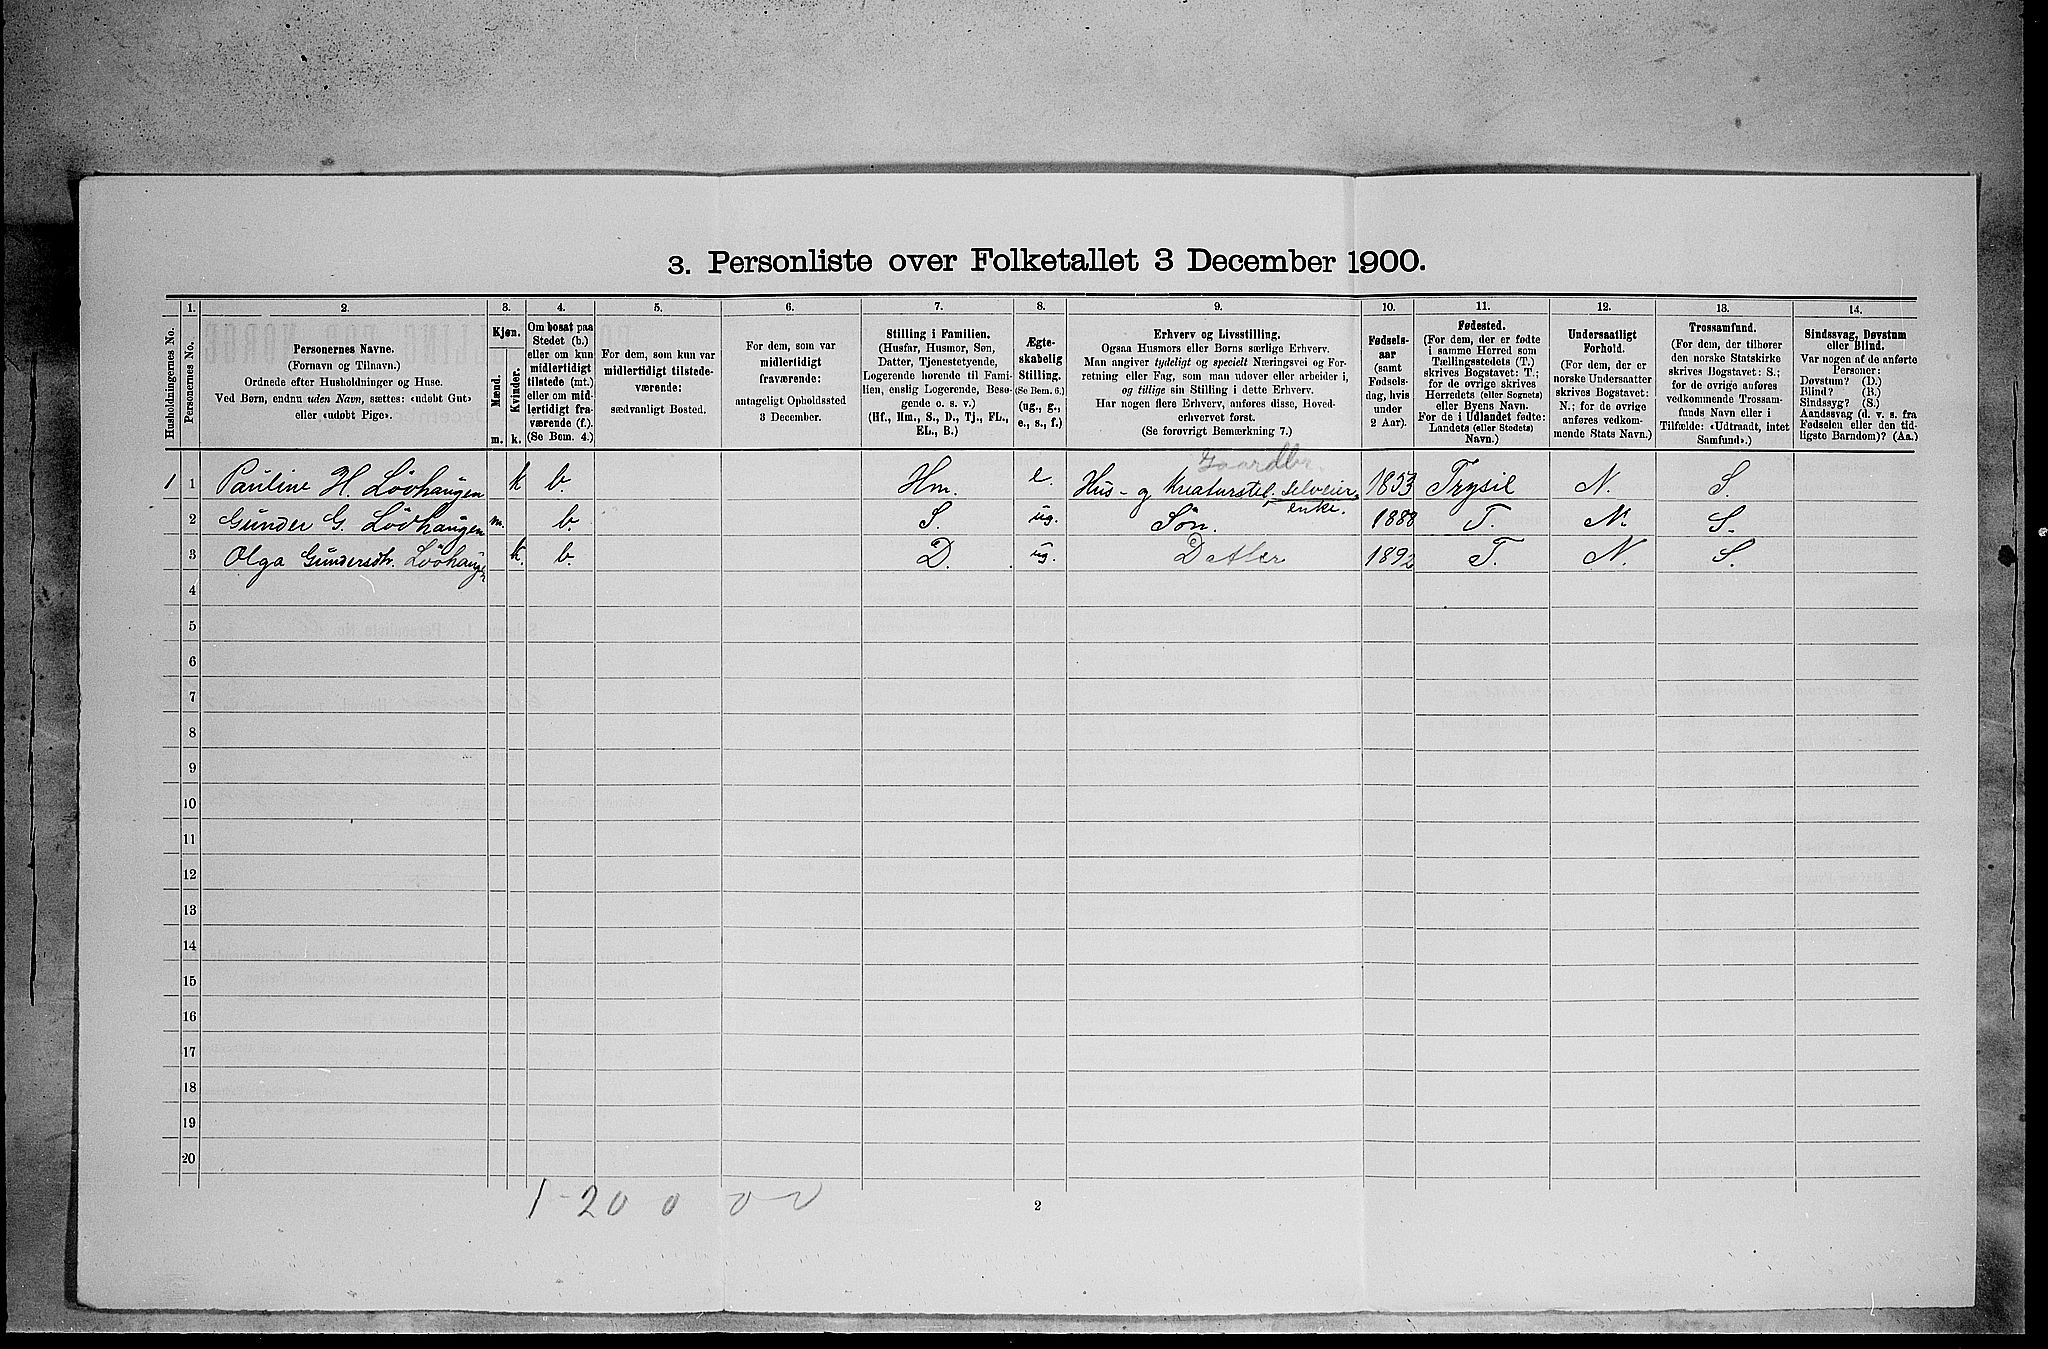 3. Personliste over Folketallet 3 December 1900.
Husholdningernes No.
1.
Personernes No.
2.
Personernes Navne.
(Fornavn og Tilnavn.)
Ordnede efter Husholdninger og Huse.
Ved Børn, endnu uden Navn, sættes: «udøbt Gut»
eller «udøbt Pige».
3.
Kjøn.
Mænd.
Kvinder.
m. k.
4.
Om bosat paa
Stedet (b.)
eller om kun
midlertidigt
tilstede (mt.)
eller om mid-
lertidigt fra-
værende (f.).
(Se Bem. 4.)
5.
For dem, som kun var
midlertidigt tilstede-
værende:
sædvanligt Bosted.
6.
For dem, som var
midlertidigt
fraværende:
antageligt Opholdssted
3 December.
7.
Stilling i Familien.
(Husfar, Husmor, Søn,
Datter, Tjenestetyende,
Logerende hørende til Fami-
lien, enslig Logerende, Besø-
gende o. s. v.)
(Hf., Hm., S., D., Tj., FL.,
EL., B.)
8.
Ægte-
skabelig
Stilling.
(Se Bem. 6.)
(ug., g.,
e., s., f.)
9.
Erhverv og Livsstilling.
Ogsaa Husmors eller Børns særlige Erhverv.
Man angiver tydeligt og specielt Næringsvei og For-
retning eller Fag, som man udøver eller arbeider i,
og tillige sin Stilling i dette Erhverv.
Har nogen flere Erhverv, anføres disse, Hoved-
erhvervet først.
(Se forøvrigt Bemærkning 7.)
10.
Fødsels-
aar
(samt
Fødsels-
dag, hvis
under
2 Aar).
11.
Fødested.
(For dem, der er fødte
i samme Herred som
Tællingsstedets (T.)
skrives Bogstavet: T.;
for de øvrige skrives
Herredets (eller Sognets)
eller Byens Navn.
For de i Udlandet fødte:
Landets (eller Stedets)
Navn.)
12.
Undersaatligt
Forhold.
(For dem, der er
norske Undersaatter
skrives Bogstavet:
N.; for de øvrige
anføres vedkom-
mende Stats Navn.)
13.
Trossamfund.
(For dem, der tilhører
den norske Statskirke
skrives Bogstavet: S.;
for de øvrige anføres
vedkommende Trossam-
funds Navn eller i
Tilfælde: «Udtraadt, intet
Samfund».)
14.
Sindssvag, Døvstum
eller Blind.
Var nogen af de anførte
Personer:
Døvstum? (D.)
Blind? (B.)
Sindssyg? (S.)
Aandssvag (d. v. s. fra
Fødselen eller den tid-
ligste Barndom)? (Aa.)
Gaardbr.
1 1 Pauline H. Lövhaugen k b. Hm. e. Hus- og Kreaturstel. selveier enke. 1853 Trysil N. S.
2 Gunder G. Lövhaugen m. b. S. ug. Søn. 1888 T. N. S.
3 Olga Gundersdtr. Lövhaugen k. b. D. ug. Datter T. N. S.
4
5
6
7
8
9
10
11
12
13
14
15
16
17
18
19
20
1-20 0
2